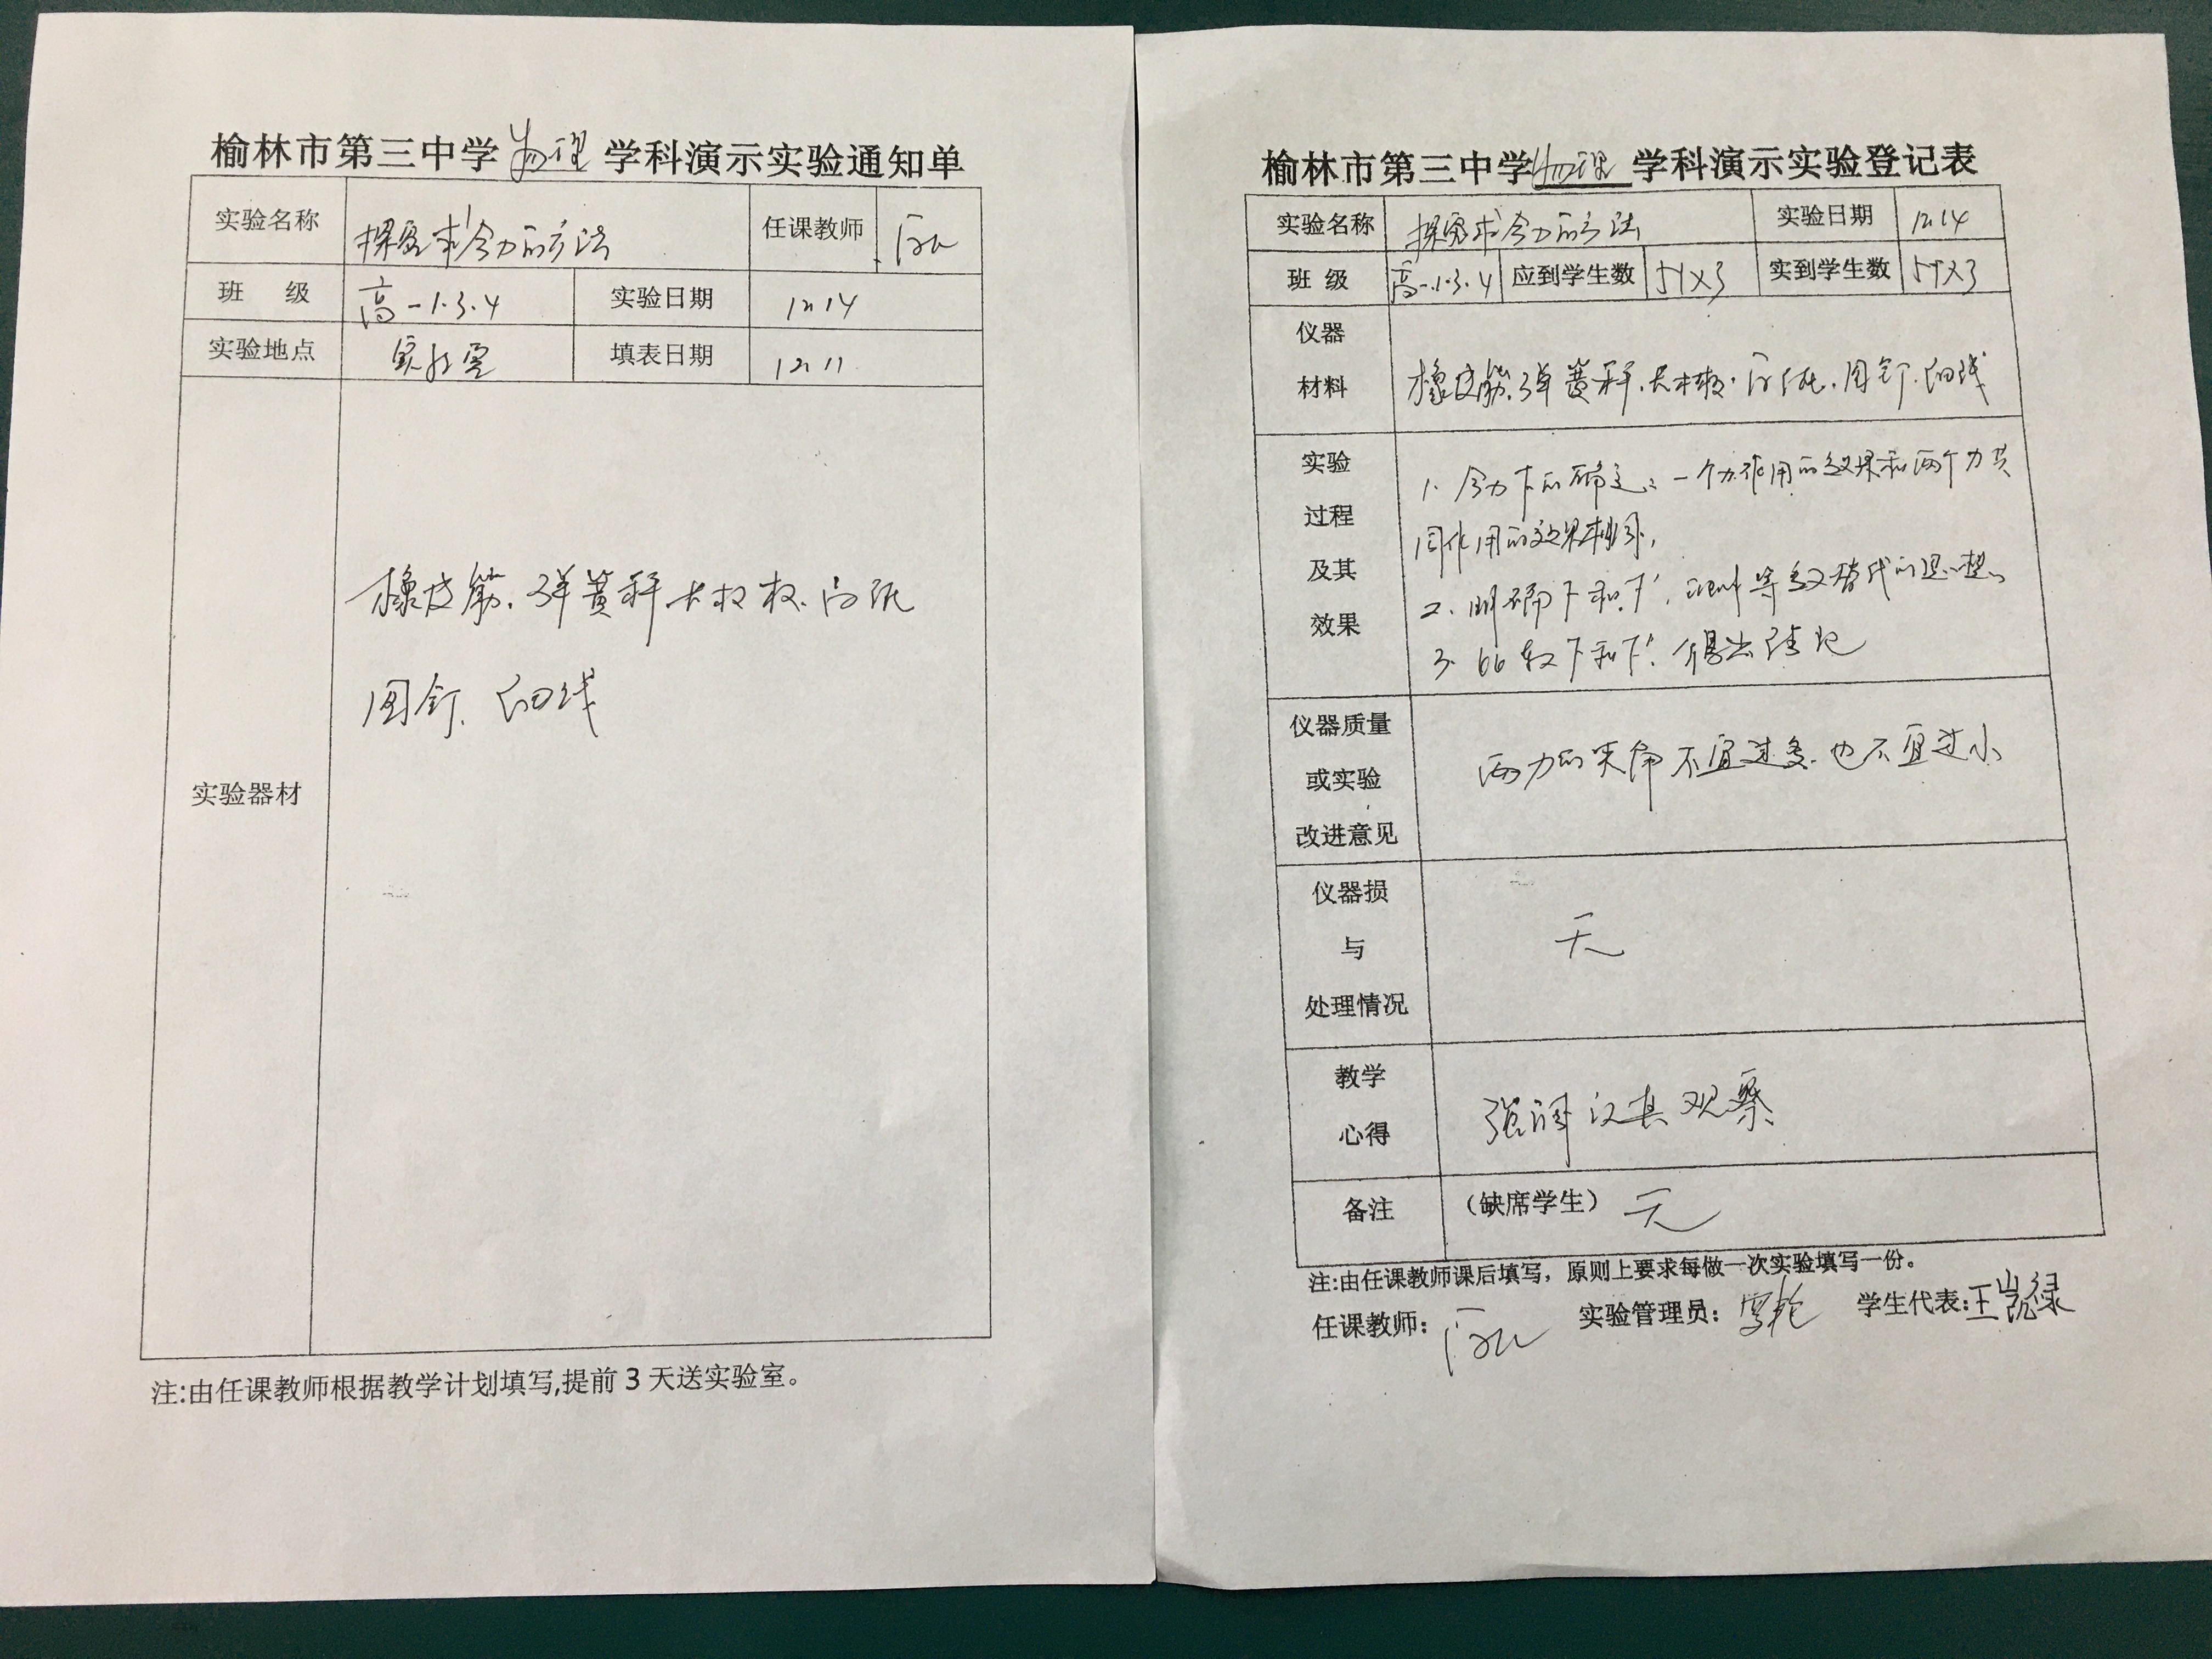 榆林市第三中学物理学科演示实验通知单
实验名称 探究求合力的方法 任课教师
班 级 高一1.3.4 实验日期 12.14
实验地点 实验室 填表日期 12.11
实验器材
橡皮筋、弹簧秤、木板、白纸
图钉、细线
注:由任课教师根据教学计划填写,提前3天送实验室。
榆林市第三中学物理学科演示实验登记表
实验名称 探究求合力的方法 实验日期 12.14
班 级 高一.1.3.4 应到学生数 54×3 实到学生数 54×3
仪器
材料
橡皮筋、弹簧秤、木板、白纸、图钉、细线
实验
过程
及其
效果
1、合力F的确定:一个力作用的效果和两个力共
同作用的效果相同,
2、明确F和F′, 等效替代的思想
3、比较F和F′,得出结论
仪器质量
或实验
改进意见
两力的夹角不宜过大、也不宜过小
仪器损
与
处理情况
无
教学
心得
强调认真观察
备注 (缺席学生) 无
注:由任课教师课后填写，原则上要求每做一次实验填写一份。
任课教师: 实验管理员: 学生代表:王